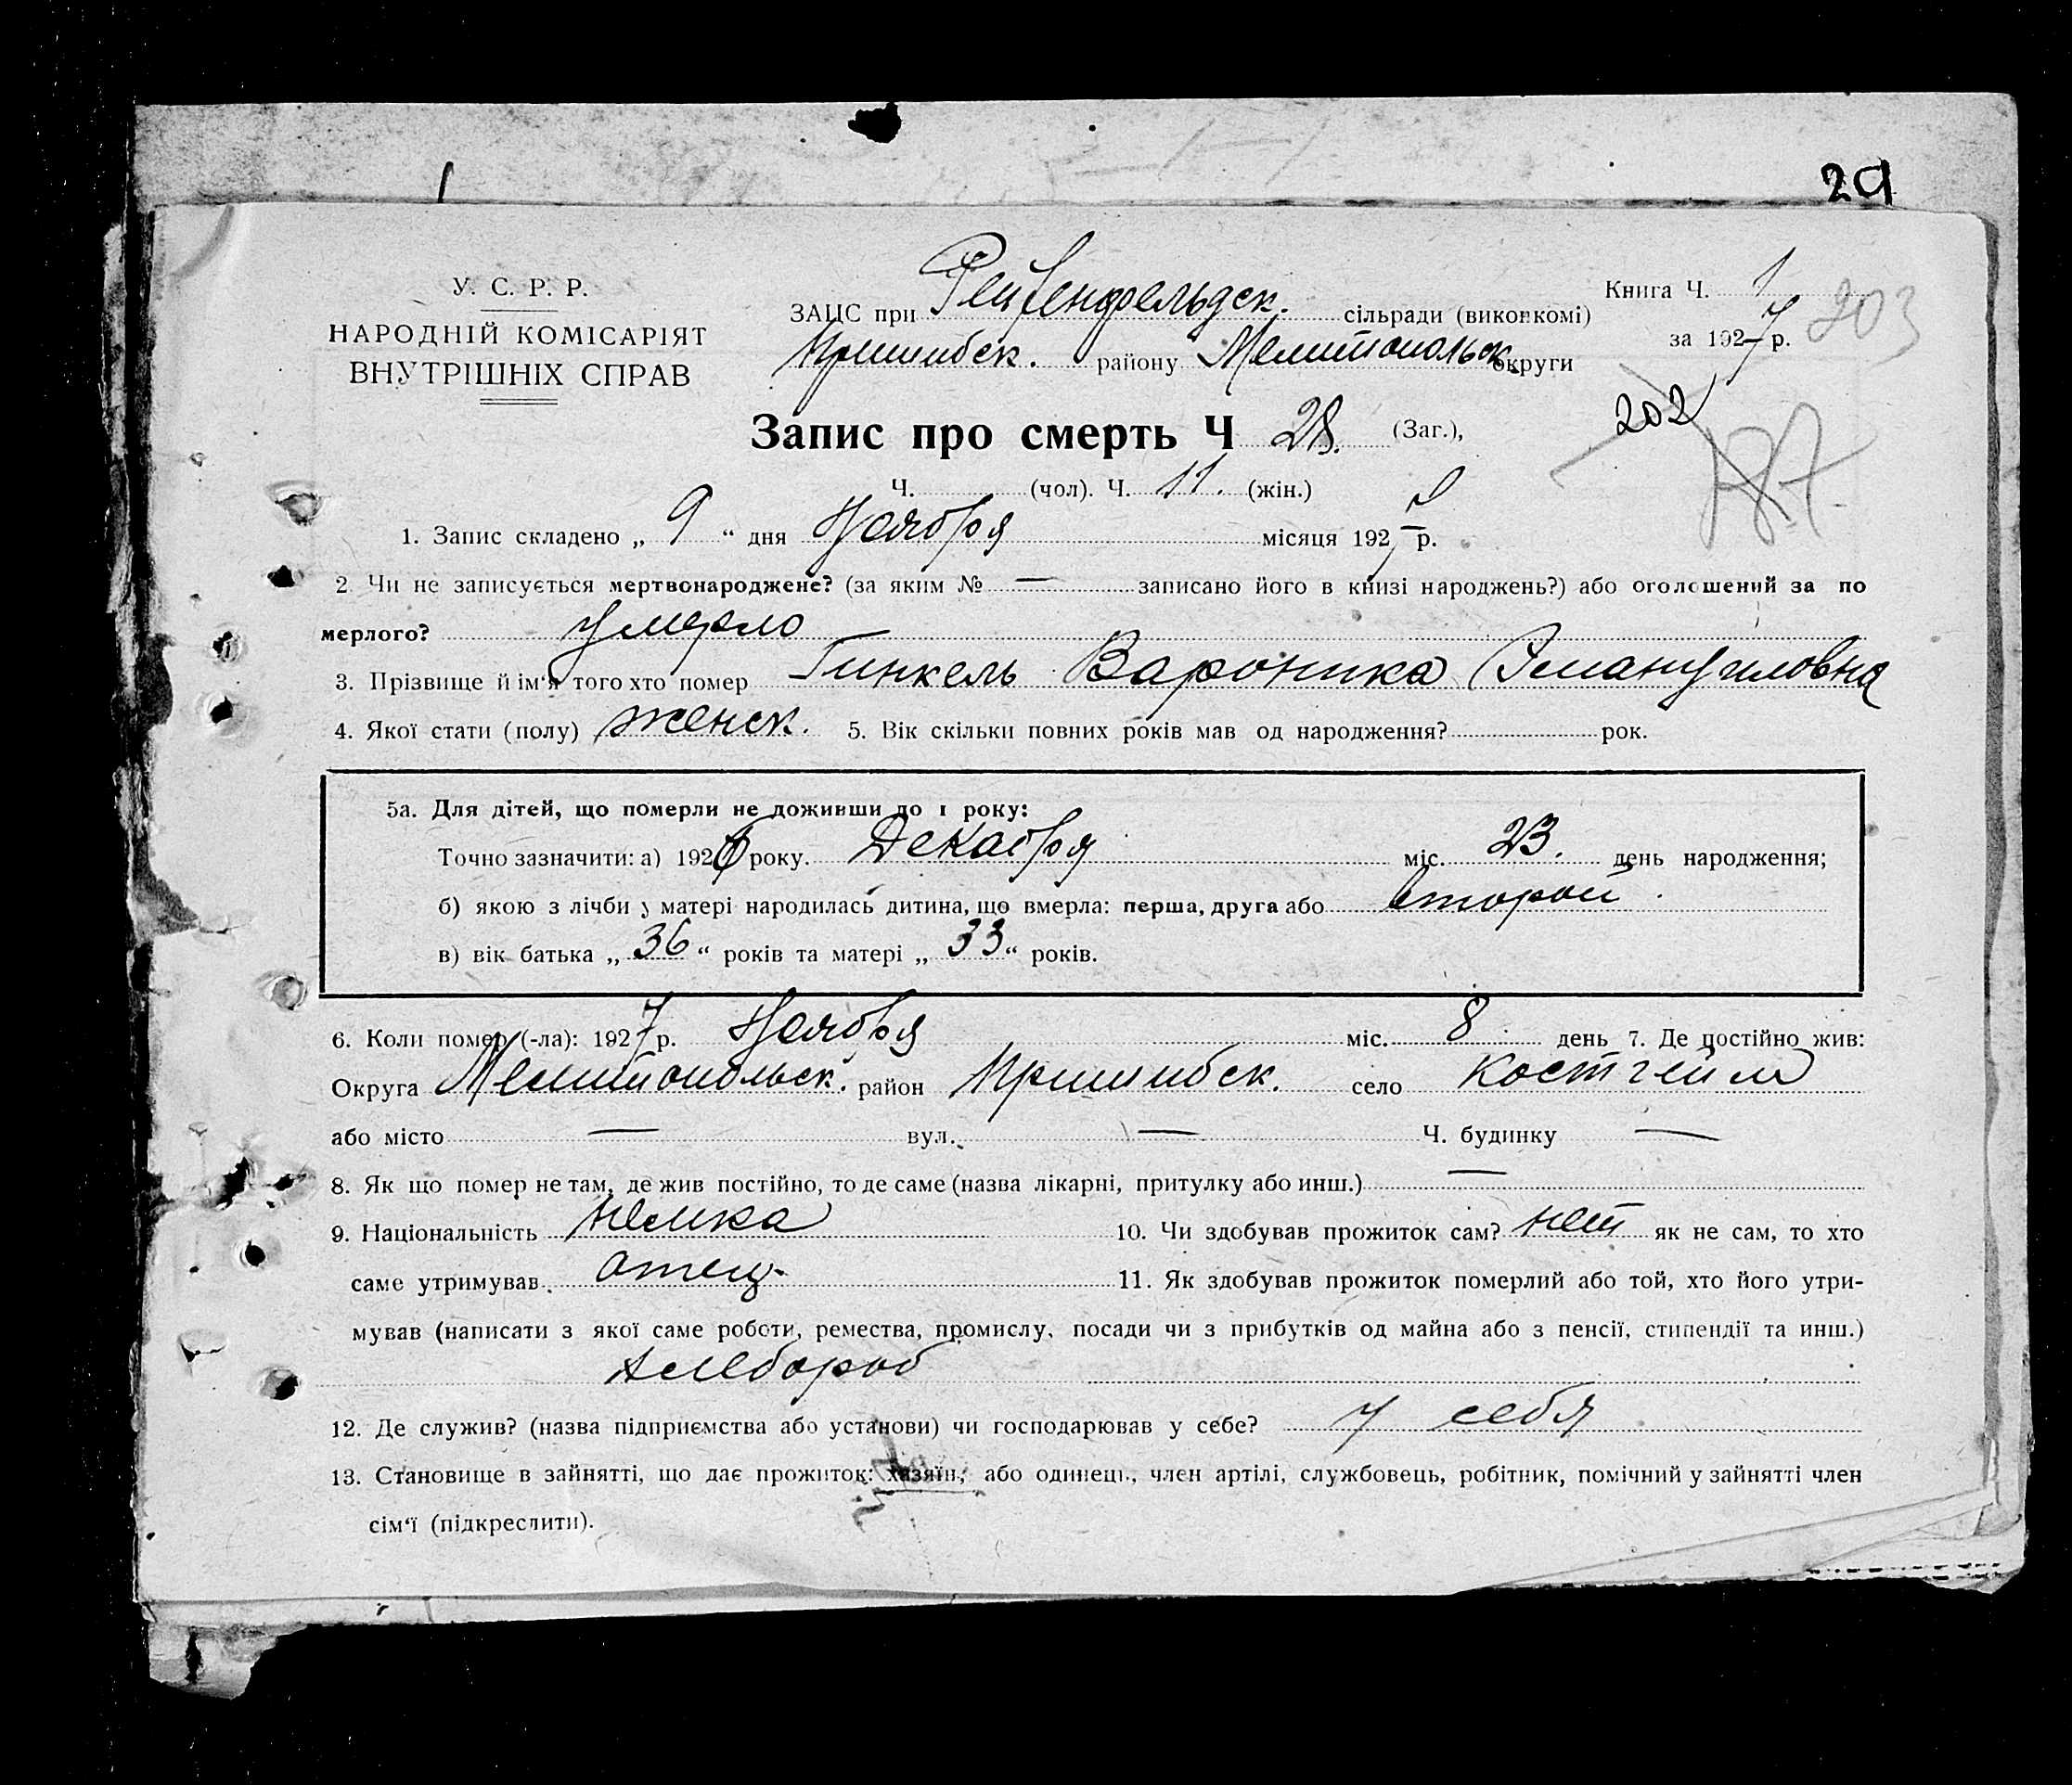 29
У. С. Р. Р.
НАРОДНІЙ КОМІСАРІЯТ
ВНУТРІШНІХ СПРАВ
ЗАЦС при Рейхенфельдск. сільради (виконкомі)
Пришибск. району Мелитопольск. округи
Книга Ч. 1
за 1927 р.
203
202
Запис про смерть Ч 28. (Заг.),
Ч. (чол). Ч. 11. (жін.)
1. Запис складено „ 9 “ дня Ноября місяця 1927 р.
2. Чи не записується мертвонароджене? (за яким № — записано його в книзі народжень?) або оголошений за по
мерлого? умерло
3. Прізвище й ім‘я того хто помер Гинкель Вароника Эмануиловна
4. Якої стати (полу) женск. 5. Вік скільки повних років мав од народження? рок.
5а. Для дітей, що померли не доживши до 1 року:
Точно зазначити: а) 1926 року. Декабря міс. 23. день народження;
б) якою з лічби у матері народилась дитина, що вмерла: перша, друга або второй.
в) вік батька „ 36 “ років та матері „ 33 “ років.
6. Коли помер (-ла): 1927 р. Ноября міс. 8 день 7. Де постійно жив:
Округа Мелитопольск. район Пришибск. село Костгейм
або місто — вул. — Ч. будинку —
8. Як що помер не там, де жив постійно, то де саме (назва лікарні, притулку або инш.) —
9. Національність немка 10. Чи здобував прожиток сам? нет як не сам, то хто
саме утримував отец 11. Як здобував прожиток померлий або той, хто його утри-
мував (написати з якої саме роботи, ремества, промислу, посади чи з прибутків од майна або з пенсії, стипендії та инш.)
хлебороб
12. Де служив? (назва підприємства або установи) чи господарював у себе? у себя
13. Становище в зайнятті, що дає прожиток: хазяїн, або одинець, член артілі, службовець, робітник, помічний у зайнятті член
сім‘ї (підкреслити).